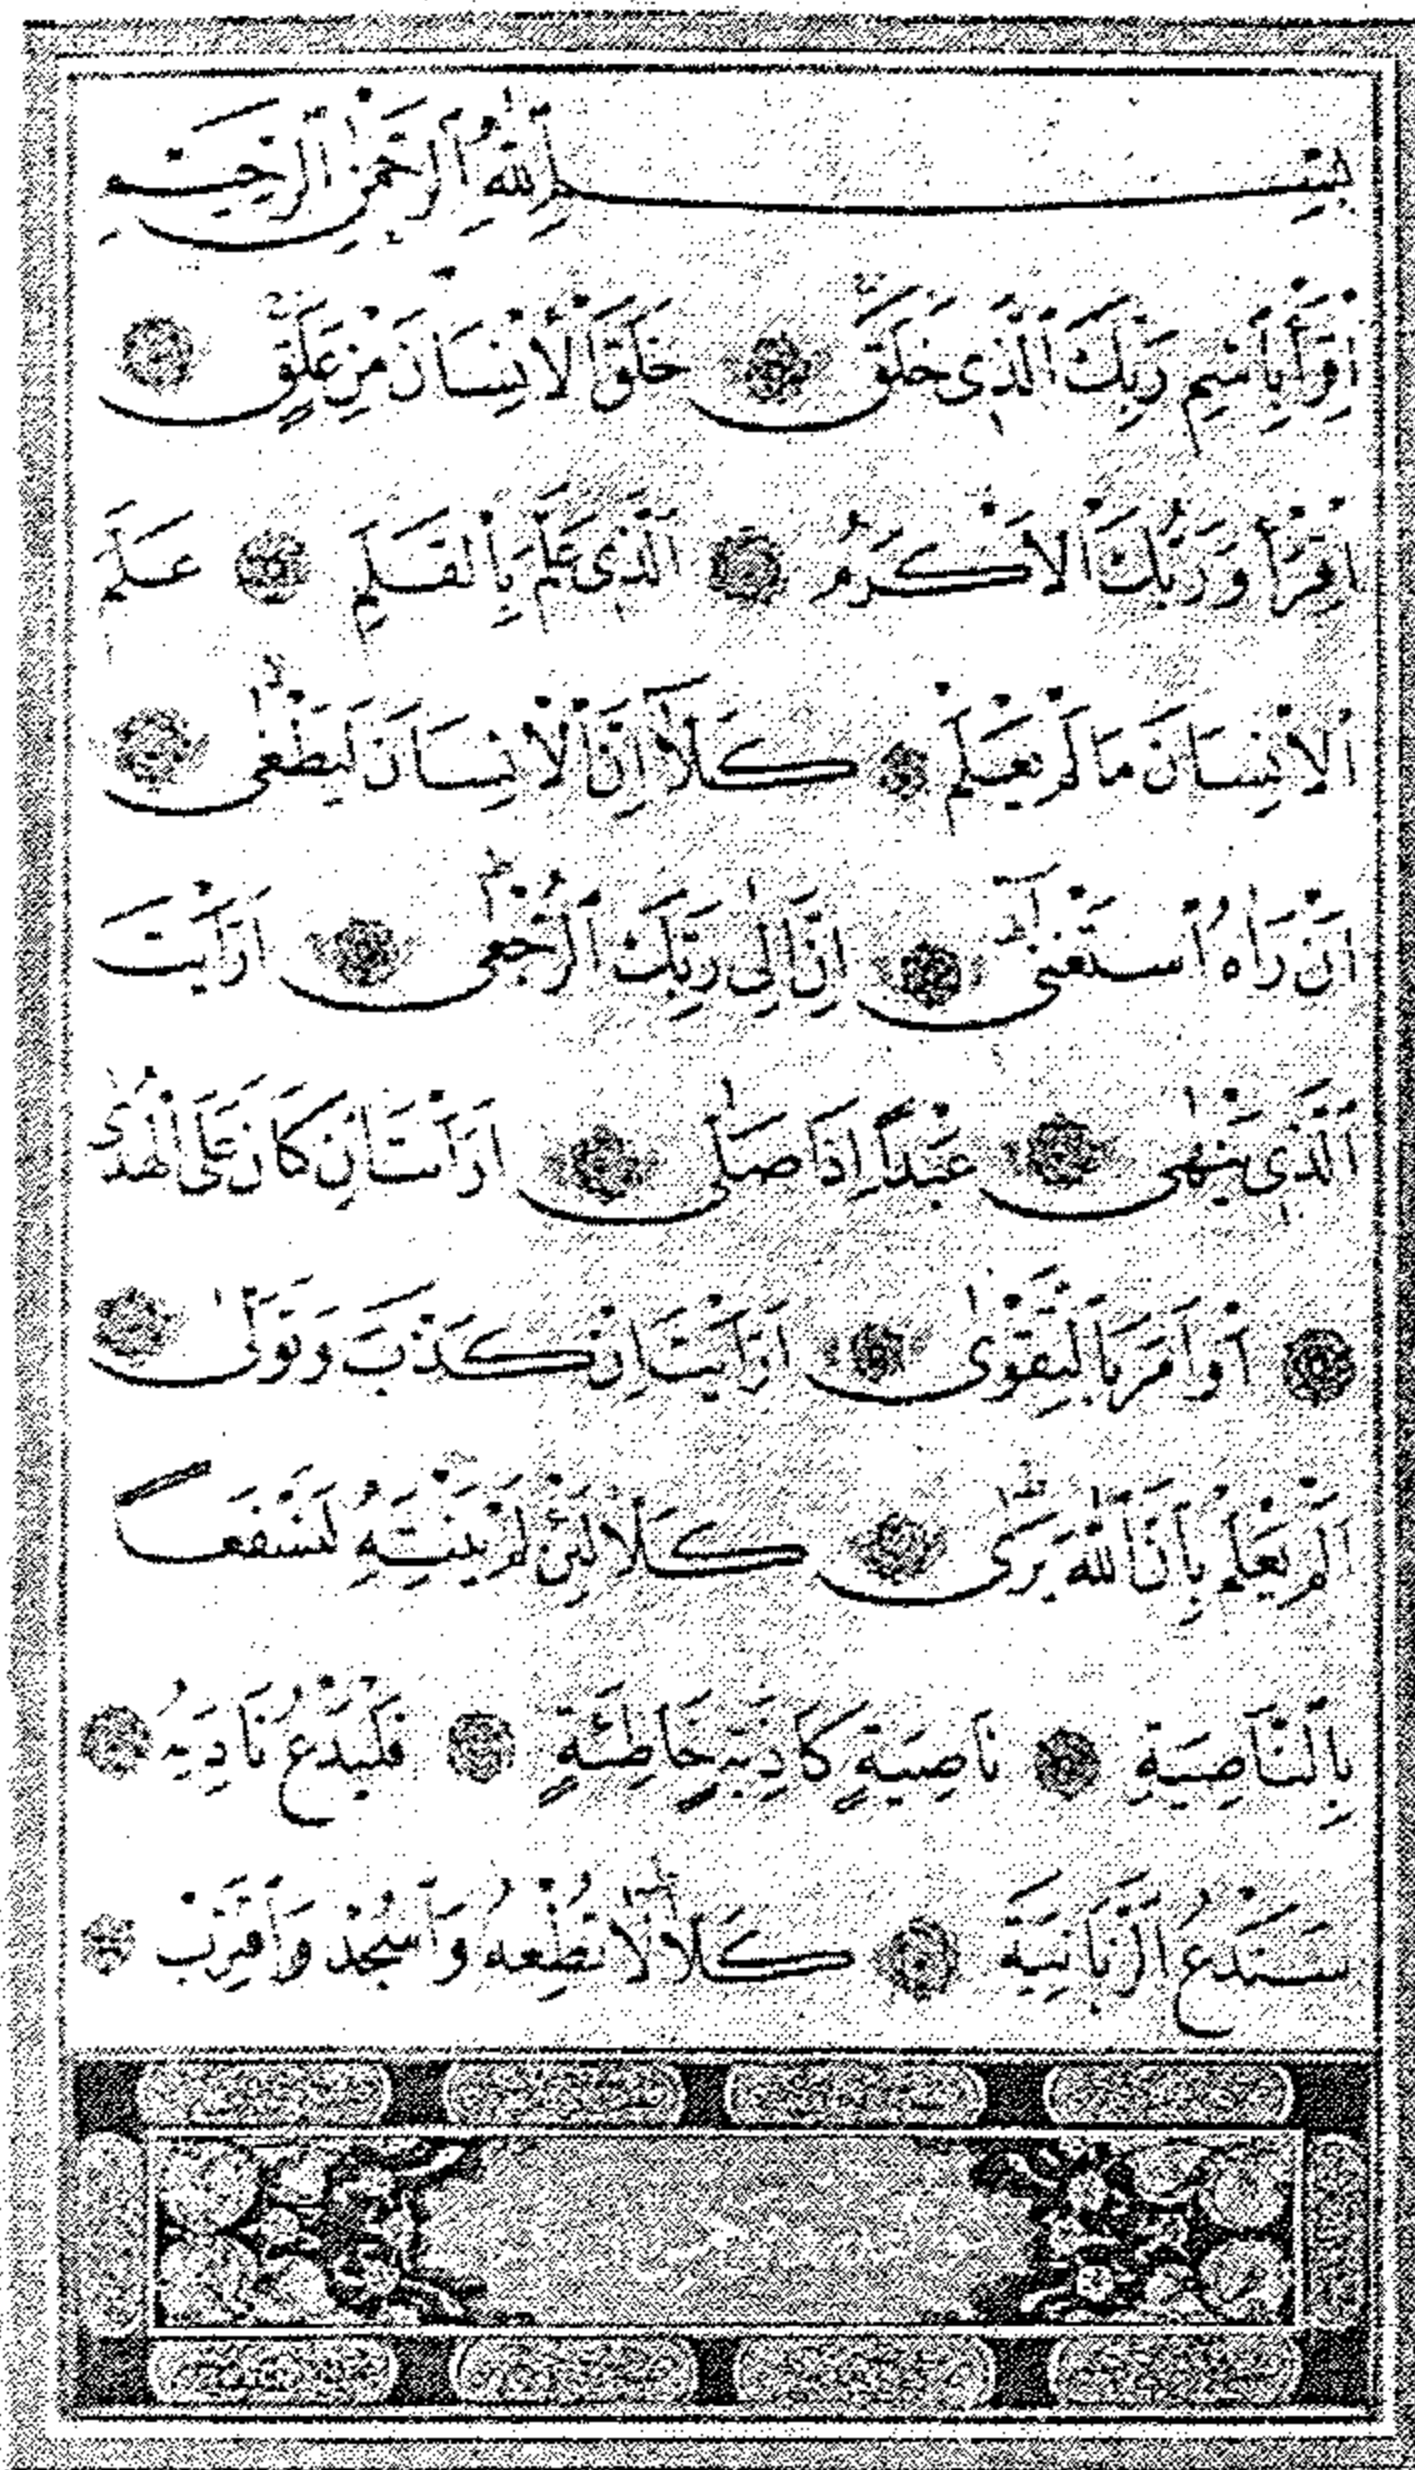 بِسْمِ اللهِ الرَّحْمٰنِ الرَّحِيمِ
اِقْرَأْ بِاسْمِ رَبِّكَ الَّذِى خَلَقَ خَلَقَ الْاِنْسَانَ مِنْ عَلَقٍ
اِقْرَأْ وَرَبُّكَ الْاَكْرَمُ اَلَّذِى عَلَّمَ بِالْقَلَمِ عَلَّمَ
الْاِنْسَانَ مَا لَمْ يَعْلَمْ كَلَّا اِنَّ الْاِنْسَانَ لَيَطْغٰى
اَنْ رَاٰهُ اسْتَغْنٰى اِنَّ اِلٰى رَبِّكَ الرُّجْعٰى اَرَاَيْتَ
الَّذِى يَنْهٰى عَبْدًا اِذَا صَلّٰى اَرَاَيْتَ اِنْ كَانَ عَلَى الْهُدٰى
اَوْ اَمَرَ بِالتَّقْوٰى اَرَاَيْتَ اِنْ كَذَّبَ وَتَوَلّٰى
اَلَمْ يَعْلَمْ بِاَنَّ اللهَ يَرٰى كَلَّا لَئِنْ لَمْ يَنْتَهِ لَنَسْفَعًا
بِالنَّاصِيَةِ نَاصِيَةٍ كَاذِبَةٍ خَاطِئَةٍ فَلْيَدْعُ نَادِيَهُ
سَنَدْعُ الزَّبَانِيَةَ كَلَّا لَا تُطِعْهُ وَاسْجُدْ وَاقْتَرِبْ